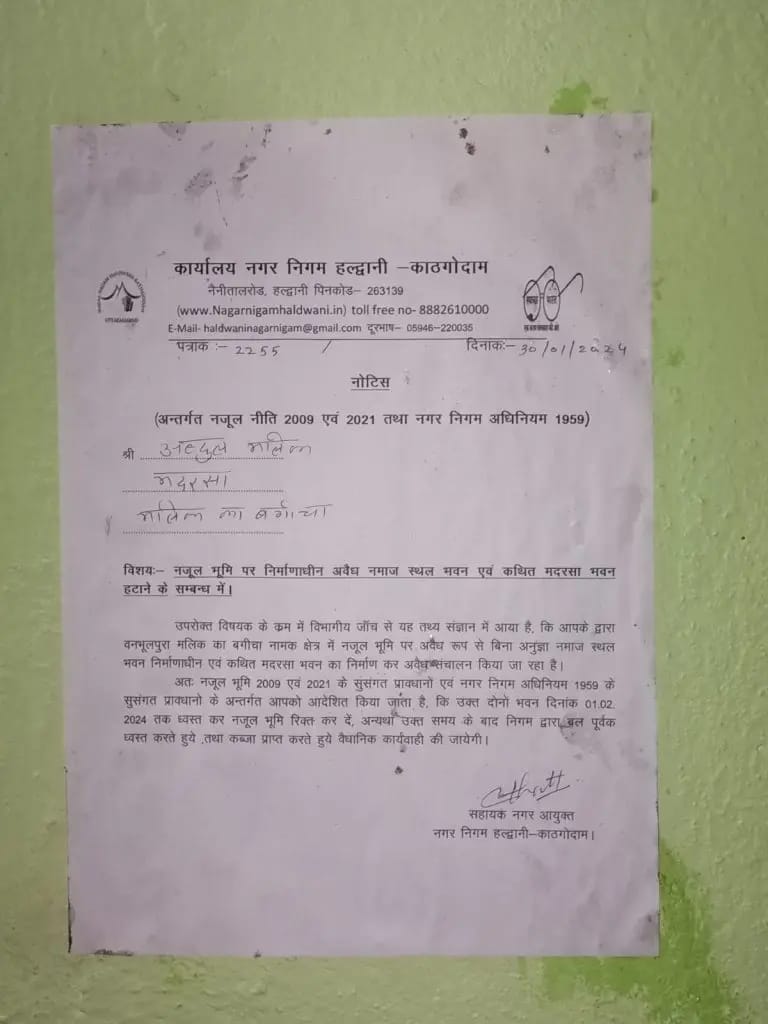 कार्यालय नगर निगम हल्द्वानी –काठगोदाम
नैनीतालरोड, हल्द्वानी पिनकोड– 263139
(www.Nagarnigamhaldwani.in) toll free no- 8882610000
E-Mail- haldwaninagarnigam@gmail.com दूरभाष– 05946-220035
पत्राक :– 2255 / दिनाकः– 30/01/2024
नोटिस
(अन्तर्गत नजूल नीति 2009 एवं 2021 तथा नगर निगम अधिनियम 1959)
श्री अब्दुल मलिक
मदरसा
मलिक का बगीचा
विशयः– नजूल भूमि पर निर्माणाधीन अवैध नमाज स्थल भवन एवं कथित मदरसा भवन
हटाने के सम्बन्ध में।
उपरोक्त विषयक के क्रम में विभागीय जाँच से यह तथ्य संज्ञान में आया है, कि आपके द्वारा
वनभूलपुरा मलिक का बगीचा नामक क्षेत्र में नजूल भूमि पर अवैध रूप से बिना अनुज्ञा नमाज स्थल
भवन निर्माणाधीन एवं कथित मदरसा भवन का निर्माण कर अवैध संचालन किया जा रहा है।
अतः नजूल भूमि 2009 एवं 2021 के सुसंगत प्रावधानो एवं नगर निगम अधिनियम 1959 के
सुसंगत प्रावधानो के अन्तर्गत आपको आदेशित किया जाता है, कि उक्त दोनों भवन दिनांक 01.02.
2024 तक ध्वस्त कर नजूल भूमि रिक्त कर दें, अन्यथा उक्त समय के बाद निगम द्वारा बल पूर्वक
ध्वस्त करते हुये ,तथा कब्जा प्राप्त करते हुये वैधानिक कार्यवाही की जायेगी।
सहायक नगर आयुक्त
नगर निगम हल्द्वानी–काठगोदाम।